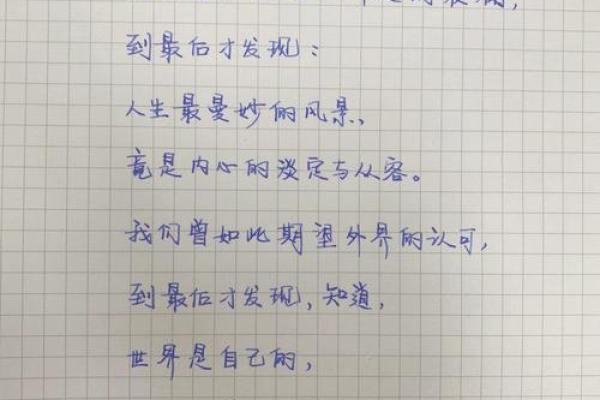 到最后才发现：
人生最曼妙的风景、
竟是内心的淡定与从容。
我们曾如此期望外界的认可,
到最后才发现,知道,
世界是自己的,